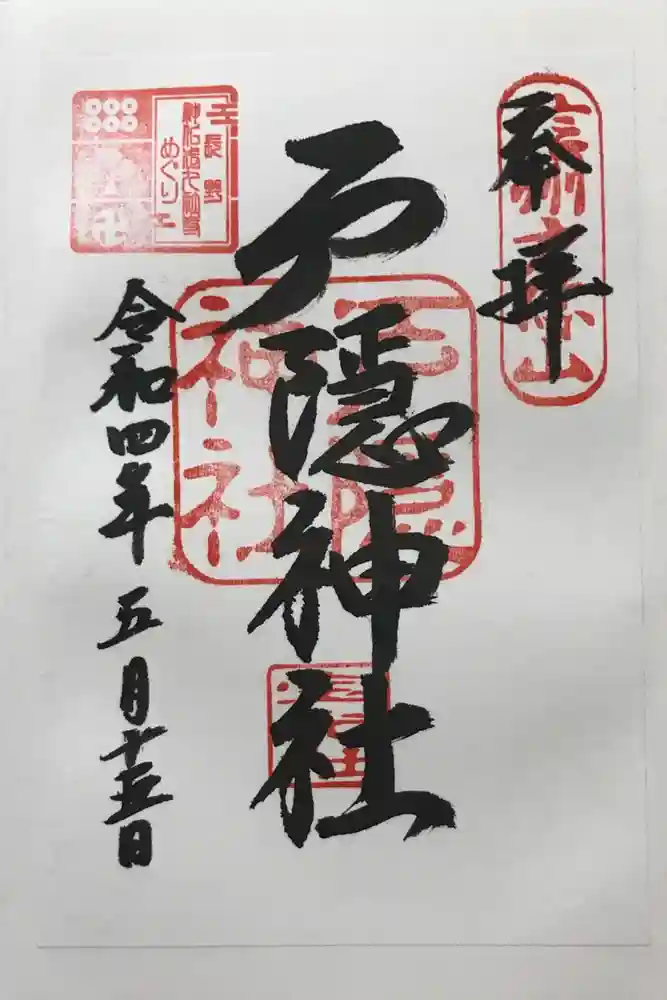 奉拝
戸隠神社
令和四年五月十五日
戸隠神社
長野
めぐり